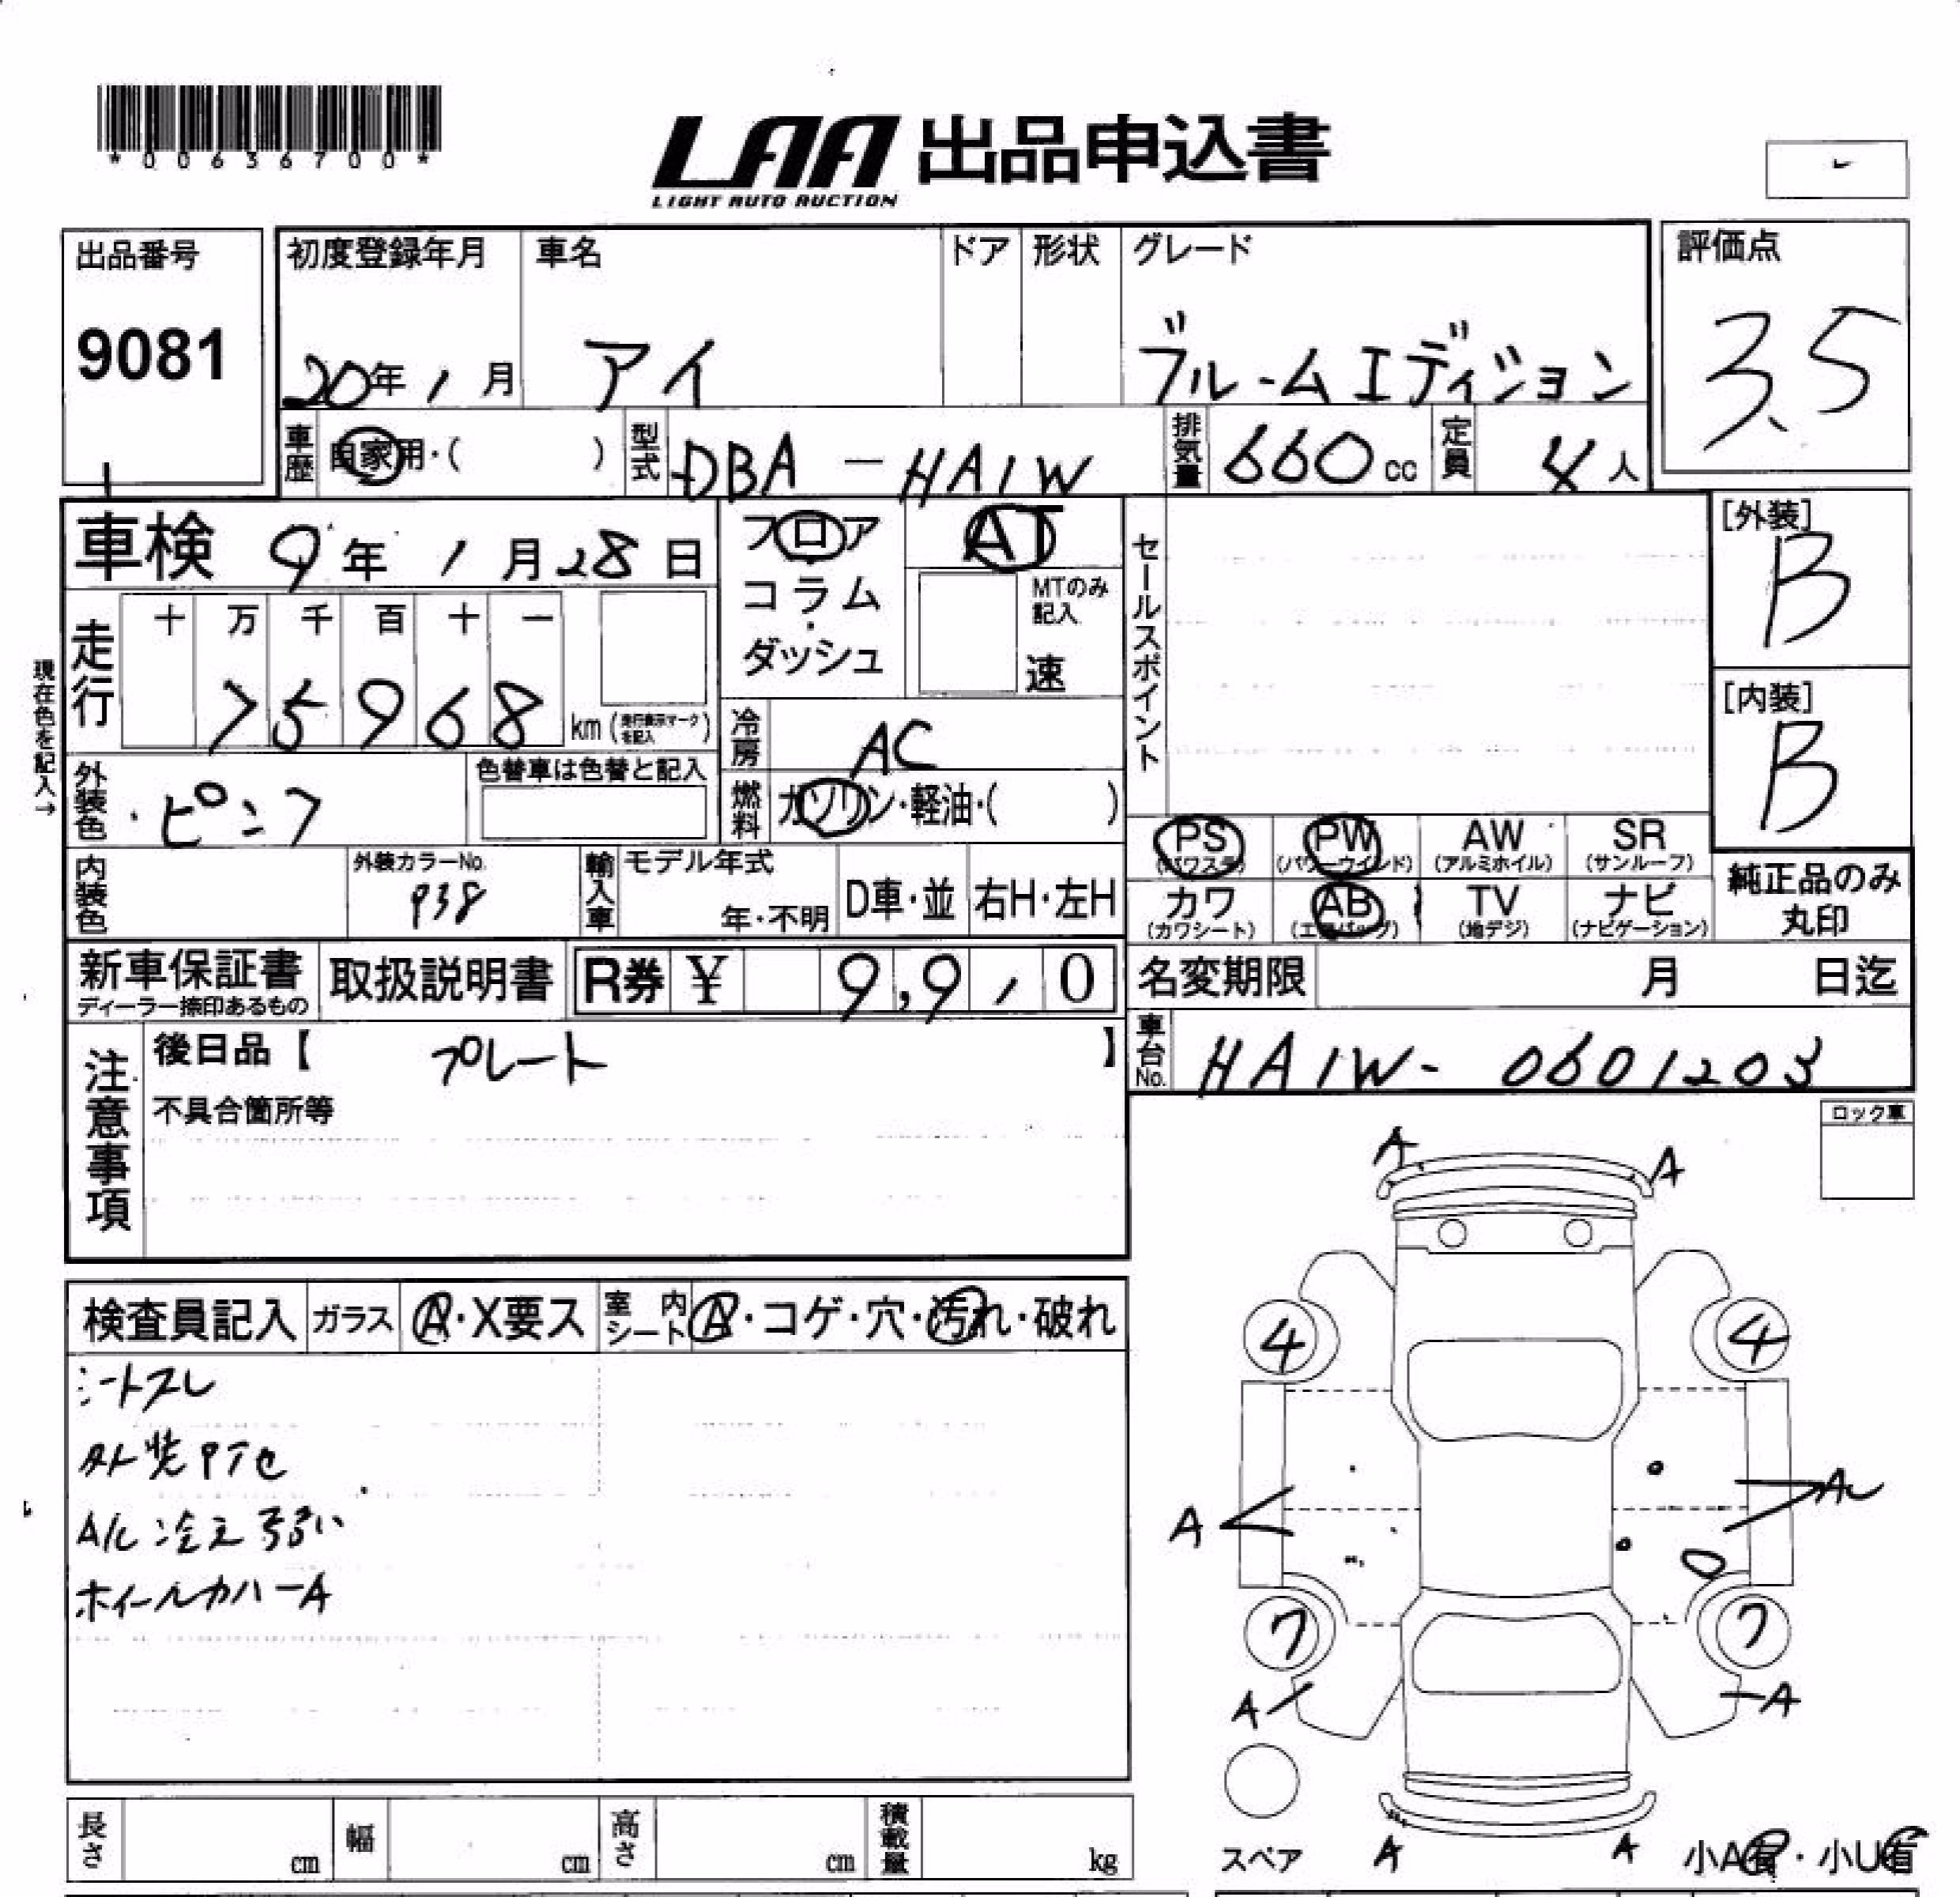 *00636700*
LAA 出品申込書
LIGHT AUTO AUCTION
出品番号
9081
初度登録年月 車名 ドア 形状 グレード
20年1月 アイ ブルームエディション
評価点
3.5
車歴 自家用・( ) 型式 DBA-HA1W 排気量 660cc 定員 4人
車検 9年1月28日
フロア
コラム
・
ダッシュ
AT
MTのみ
記入
速
セールスポイント
[外装]
B
[内装]
B
現在色を記入→
走行 十 万 千 百 十 一
75968 km(走行表示マークを記入)
冷房 AC
燃料 ガソリン・軽油・( )
外装色 ピンク
色替車は色替と記入
内装色
外装カラーNo.
P38
輸入車 モデル年式
年・不明 D車・並 右H・左H
PS (パワステ) PW (パワーウインド) AW (アルミホイル) SR (サンルーフ)
カワ (カワシート) AB (エアバッグ) TV (地デジ) ナビ (ナビゲーション)
純正品のみ
丸印
新車保証書
ディーラー捺印あるもの
取扱説明書 R券 ¥ 9,9 0
名変期限 月 日迄
車台No. HA1W-0601203
注意事項
後日品【 プレート 】
不具合箇所等
ロック車
検査員記入 ガラス A・X要ス 室内シート A・コゲ・穴・汚れ・破れ
シートスレ
外装
A/C 冷え弱い
ホイールカバーA
A A
4 4
A A
7 7
A A
A A
スペア
小A有・小U有
長さ cm 幅 cm 高さ cm 積載量 kg